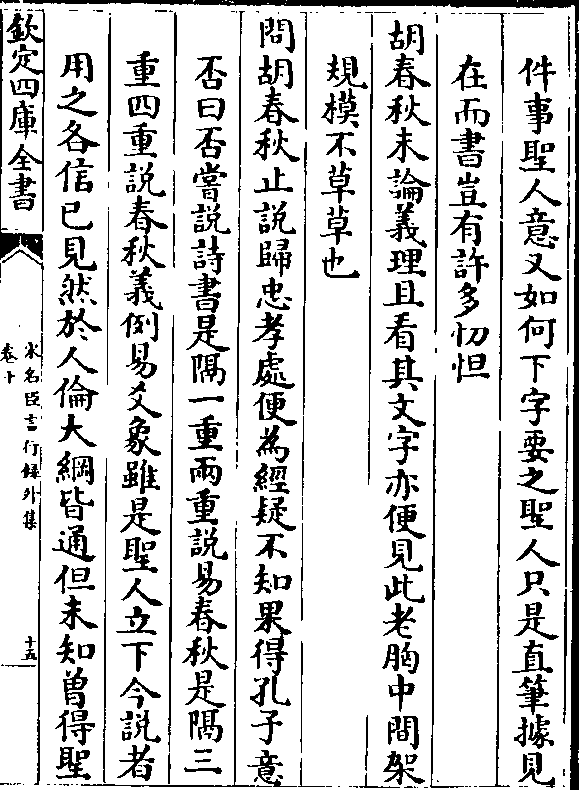 件事聖人意又如何下字要之聖人只是直筆據見
在而書豈有許多忉怛
胡春秋未論義理且看其文字亦便見此老胸中間架
規模不草草也
問胡春秋止説歸忠孝處便為經疑不知果得孔子意
否曰否嘗説詩書是隔一重兩重説易春秋是隔三
重四重説春秋義例易爻象雖是聖人立下今説者
用之各信已見然於人倫大綱皆通但未知曽得聖
欽定四庫全書
宋名臣言行録外集
卷十
十五